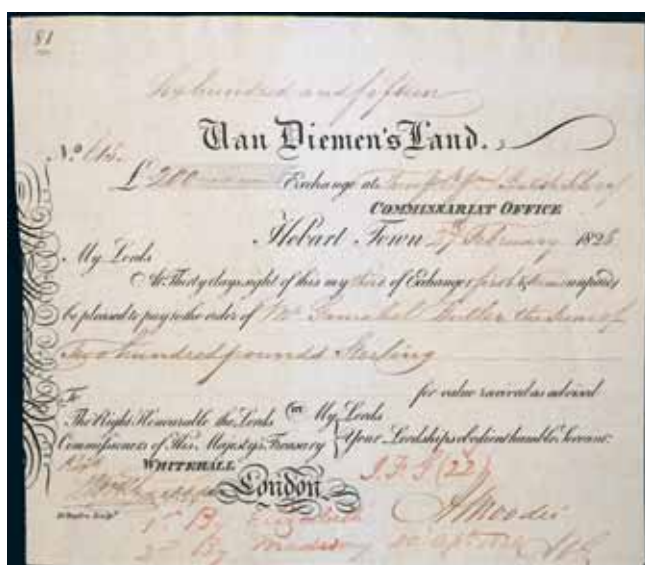 81
Six hundred and fifteen
Van Diemen's Land.
No. 615.
£ 200 Exchange at
COMMISSARIAT OFFICE
Hobart Town February 1828
My Lords
At Thirty days sight of this my third of Exchange first & unpaid
be pleased to pay to the order of Mr Gamaliel Butler the Sum of
Two hundred pounds Sterling
for value received as advised
To
The Right Honourable the Lords My Lords
Commissioners of His Majesty's Treasury Your Lordships obedient humble Servant
WHITEHALL
London
J. F. J (22)
A Moodie
1st By Elizabeth
2d By